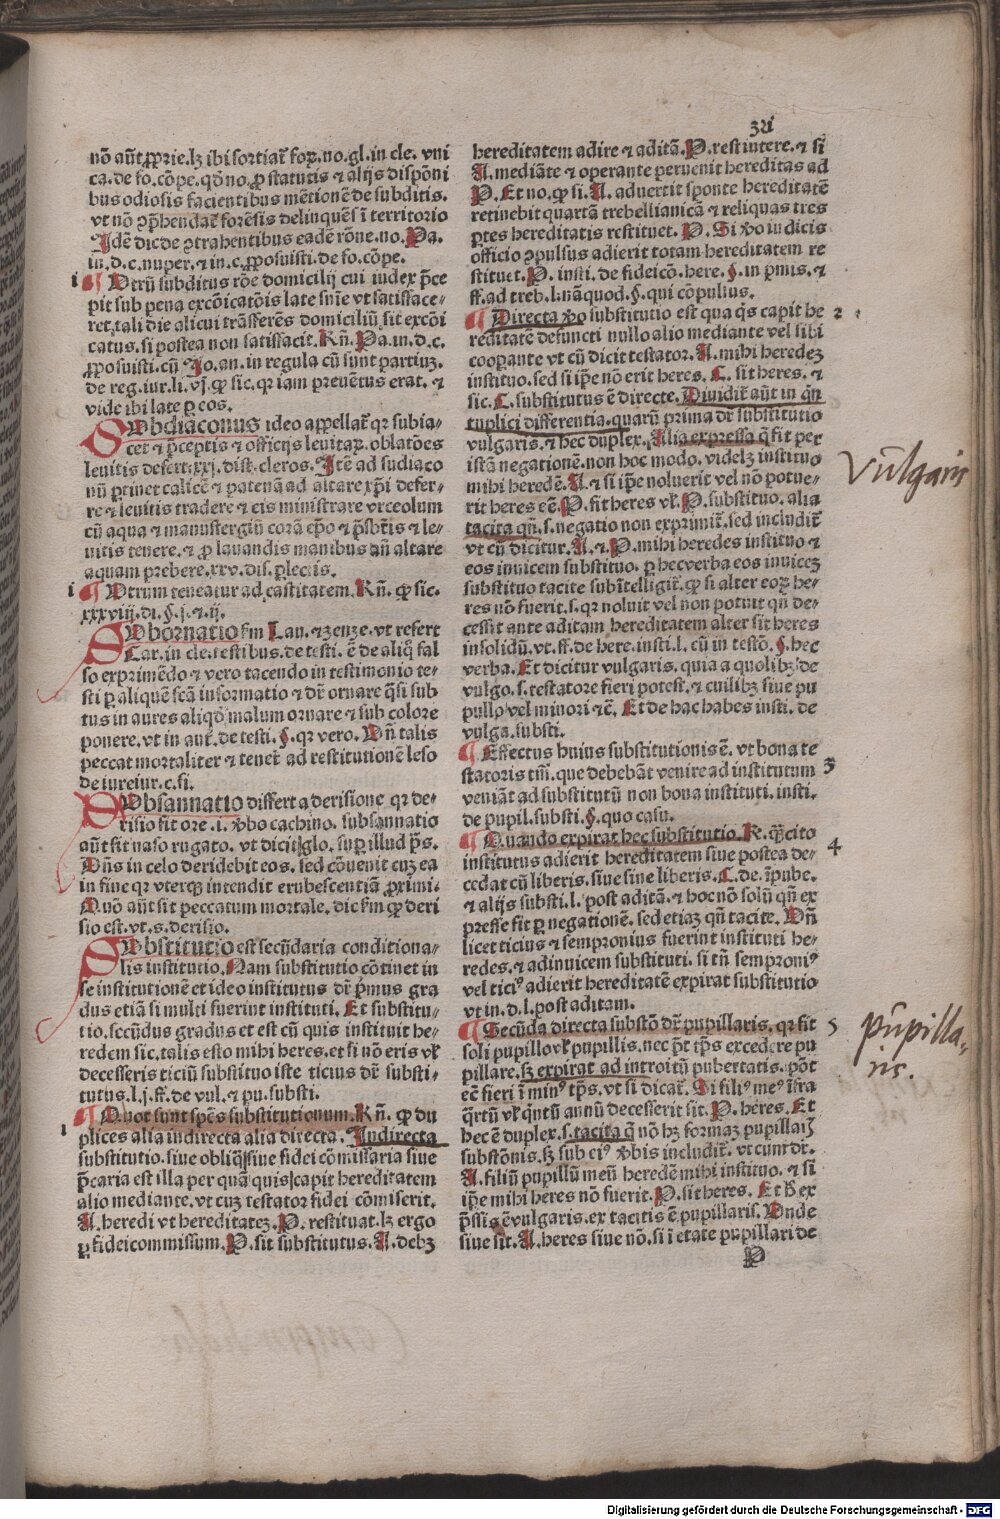 3ii
nõ aũt ꝓprie. lꝫ ibi sortiat᷑ foꝝ. no. gl. in cle. vni
ca. de fo. cõpe. qd̕ no. ꝓ statutis ⁊ alijs disponi
bus odiosis facientibus mẽtionẽ de subditis.
vt nõ ꝯp̃hendat᷑ forẽsis delinquẽs ĩ territorio
Idẽ dic de ꝯtrahentibus eadẽ rõne. no. Pa.
in. d. c. nuper. ⁊ in. c. ꝓposuisti. de fo. cõpe.
i ¶ Utrũ subditus rõe domicilij cui iudex p̃ce
pit sub pena excõicatõis late sñie vt satisface-
ret. tali die alicui trãsferẽs domiciliũ sit excõi
catus. si postea non satisfacit. Rñ. Pa. in. d. c.
ꝓposuisti. cũ Jo. an. in regula cũ sunt partiuꝫ.
de reg. iur. li. vj. ꝙ sic. qꝛ iam preuẽtus erat. ⁊
vide ibi late ꝑ eos.
SUbdiaconus ideo appellat᷑ qꝛ subia-
cet ⁊ p̃ceptis ⁊ officijs leuitaꝝ. oblatões
leuitis defert. xxj. dist. cleros. Itẽ ad sudiaco
nũ ꝑtinet calicẽ ⁊ patenã ad altare xp̃i defer-
re ⁊ leuitis tradere ⁊ eis ministrare vrceolum
cũ aqua ⁊ manustergiũ corã ep̃o ⁊ p̃sbt̃is ⁊ le-
uitis tenere. ⁊ ꝓ lauandis manibus añ altare
aquam prebere. xxv. dis. ꝑlectis.
i ¶ Utrum teneatur ad castitatem. Rñ. ꝙ sic.
xxxviij. di. §. j. ⁊. ij.
SUbornatio fm Lau. ⁊ zenze. vt refert
Car. in cle. testibus. de testi. ẽ de aliq̃ fal
so exprimẽdo ⁊ vero tacendo in testimonio te-
sti ꝑ aliquẽ fcã informatio ⁊ dr̃ ornare q̃si sub
tus in aures aliqd̕ malum ornare ⁊ sub colore
ponere. vt in auẽ. de testi. §. qꝛ vero. Uñ talis
peccat mortaliter ⁊ tenet᷑ ad restitutionẽ leso
de iureiur. c. fi.
SUbsannatio differt a derisione qꝛ de-
risio fit ore. i. v̾bo cachino. subsannatio
aũt fit naso rugato. vt dicit glo. suꝑ illud p̃s.
Dñs in celo deridebit eos. sed cõuenit cuꝫ ea
in fine qꝛ vterqꝫ intendit erubescentiã ꝓximi.
Quõ aũt sit peccatum mortale. dic fm ꝙ deri
sio est. vt. s. derisio.
SUbstitutio est secũdaria conditiona-
lis institutio. Nam substitutio cõtinet in
se institutionẽ et ideo institutus dr̃ p̃mus gra
dus etiã si multi fuerint instituti. Et substitu-
tio. secũdus gradus et est cũ quis instituit he-
redem sic. talis esto mihi heres. et si nõ eris vl̕
decesseris ticiũ substituo iste ticius dr̃ substi-
tutus. l. j. ff. de vul. ⁊ pu. substi.
1 ¶ Quot sunt spẽs substitutionum. Rñ. ꝙ du
plices alia indirecta alia directa. Indirecta
substitutio. siue obliq̃ siue fidei cõmissaria siue
p̃caria est illa per quã quis capit hereditatem
alio mediante. vt cuꝫ testator fidei cõmiserit.
A. heredi vt hereditateꝫ. P. restituat. lꝫ ergo
ꝑ fideicommissum. P. sit substitutus. A. debꝫ
hereditatem adire ⁊ aditã. P. restituere. ⁊ si
A. mediãte ⁊ operante peruenit hereditas ad
P. Et no. ꝙ si. A. aduertit sponte hereditatẽ
retinebit quartã trebellianicã ⁊ reliquas tres
ꝑtes hereditatis restituet. P. Si v̾o iudicis
officio ꝯpulsus adierit totam hereditatem re
stituet. P. insti. de fideicõ. here. §. in p̃mis. ⁊
ff. ad treb. l. nã quod. §. qui cõpulsus.
¶ Directa v̾o substitutio est qua q̃s capit he 2
reditatẽ defuncti nullo alio mediante vel sibi
cooperante vt cũ dicit testator. A. mihi heredeꝫ
instituo. sed si ip̃e nõ erit heres. C. sit heres. ⁊
sic. C. substitutus ẽ directe. Diuidit᷑ aũt in q̃n
tuplici differentia. quarũ prima dr̃ substitutio
vulgaris. ⁊ hec duplex. Alia expressa q̃ fit per
istã negationẽ. non hoc modo. videlꝫ instituo
mihi heredẽ. A. ⁊ si ip̃e noluerit vel nõ potue-
rit heres eẽ. P. fit heres vl̕. P. substituo. alia
tacita qñ. s. negatio non exprimit᷑. sed includit᷑
vt cũ dicitur. A. ⁊. P. mihi heredes instituo ⁊
eos inuicem substituo. ꝑ hec verba eos inuiceꝫ
substituo tacite subĩtelligit᷑. ꝙ si alter eoꝝ he-
res nõ fuerit. s. qꝛ noluit vel non potuit qꝛ de-
cessit ante aditam hereditatem alter sit heres
insolidũ. vt. ff. de here. insti. l. cũ in testõ. §. hec
verba. Et dicitur vulgaris. quia a quolibꝫ de
vulgo. s. testatore fieri potest. ⁊ cuilibꝫ siue pu
pullo vel minori ⁊c̃. Et de hac habes insti. de
vulga. substi.
¶ Effectus huius substitutionis ẽ. vt bona te
statoris tm̃. que debebãt venire ad institutum 3
veniãt ad substitutũ non bona instituti. insti.
de pupil. substi. §. quo casu.
¶ Quando expirat hec substitutio. R. q̃cito
institutus adierit hereditatem siue postea de- 4
cedat cũ liberis. siue sine liberis. C. de. ĩpube.
⁊ alijs substi. l. post aditã. ⁊ hoc nõ solũ qñ ex
presse fit ꝑ negationẽ. sed etiaꝫ qñ tacite. Uñ
licet ticius ⁊ sempronius fuerint instituti he-
redes. ⁊ adinuicem substituti. si tñ semproniꝰ
vel ticiꝰ adierit hereditatẽ expirat substitutio
vt in. d. l. post aditam.
¶ Secũda directa substõ dr̃ pupillaris. qꝛ fit 5
soli pupillo vl̕ pupillis. nec p̃t tp̃s excedere pu
pillare. sꝫ expirat ad introitũ pubertatis. põt
eẽ fieri ĩ minꝰ tp̃s. vt si dicat᷑. Si filiꝰ meꝰ ĩfra
q̃rtũ vl̕ q̃ntũ annũ decesserit sit. P. heres. Et
hec ẽ duplex. s. tacita q̃ nõ hꝫ formaꝫ pupillaꝶ
substõnis. sꝫ sub eiꝰ v̾bis includit᷑. vt cum dr̃.
A. filiũ pupillũ meũ heredẽ mihi instituo. ⁊ si
ip̃e mihi heres nõ fuerit. P. sit heres. Et h̃ ex
p̃ssis ẽ vulgaris. ex tacitis ẽ pupillaris. Unde
siue sit. A. heres siue nõ. si ĩ etate pupillari de
P
Vulgaris
pupilla-
ris.
Digitalisierung gefördert durch die Deutsche Forschungsgemeinschaft - DFG